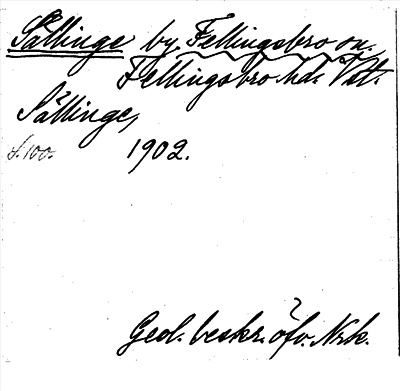 Sällinge by, Fellingsbro sn.
Fellingsbro hd. Vstl.
Sällinge,
s. 100. 1902.
Geol. beskr. öfv. Nrk.